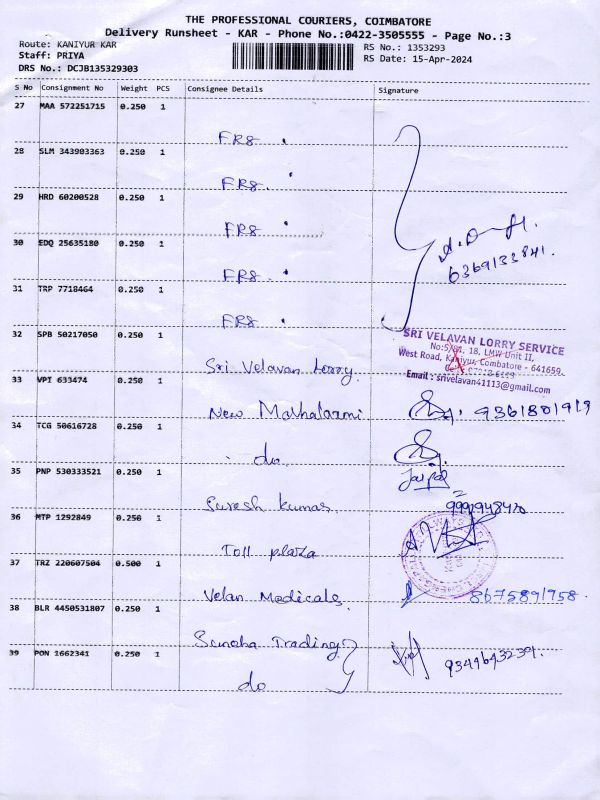 THE PROFESSIONAL COURIERS, COIMBATORE
Delivery Runsheet - KAR - Phone No.:0422-3505555 - Page No.:3
Route: KANIYUR KAR
RS No.: 1353293
Staff: PRIYA
RS Date: 15-Apr-2024
DRS No.: DCJB135329303
S No Consignment No Weight PCS Consignee Details Signature
27 MAA 572251715 0.250 1
FR8
28 SLM 343903363 0.250 1
FR8
29 HRD 60200528 0.250 1
FR8
30 EDQ 25635180 0.250 1
FR8
6369133841.
31 TRP 7718464 0.250 1
FR8
32 SPB 50217050 0.250 1
SRI VELAVAN LORRY SERVICE
No:5/81, 18, LMW Unit II,
West Road, Kaniyur, Coimbatore - 641659.
Email : srivelavan41113@gmail.com
Sri Velavan Lorry
33 VPI 633474 0.250 1
New Mahalaxmi 9361801919
34 TCG 50616728 0.250 1
do
35 PNP 530333521 0.250 1
Suresh kumar
36 MTP 1292849 0.250 1
Toll plaza
37 TRZ 220607504 0.500 1
Velan Medicals. 8675891758.
38 BLR 4450531807 0.250 1
Trading
39 PON 1662341 0.250 1
9344643239.
do